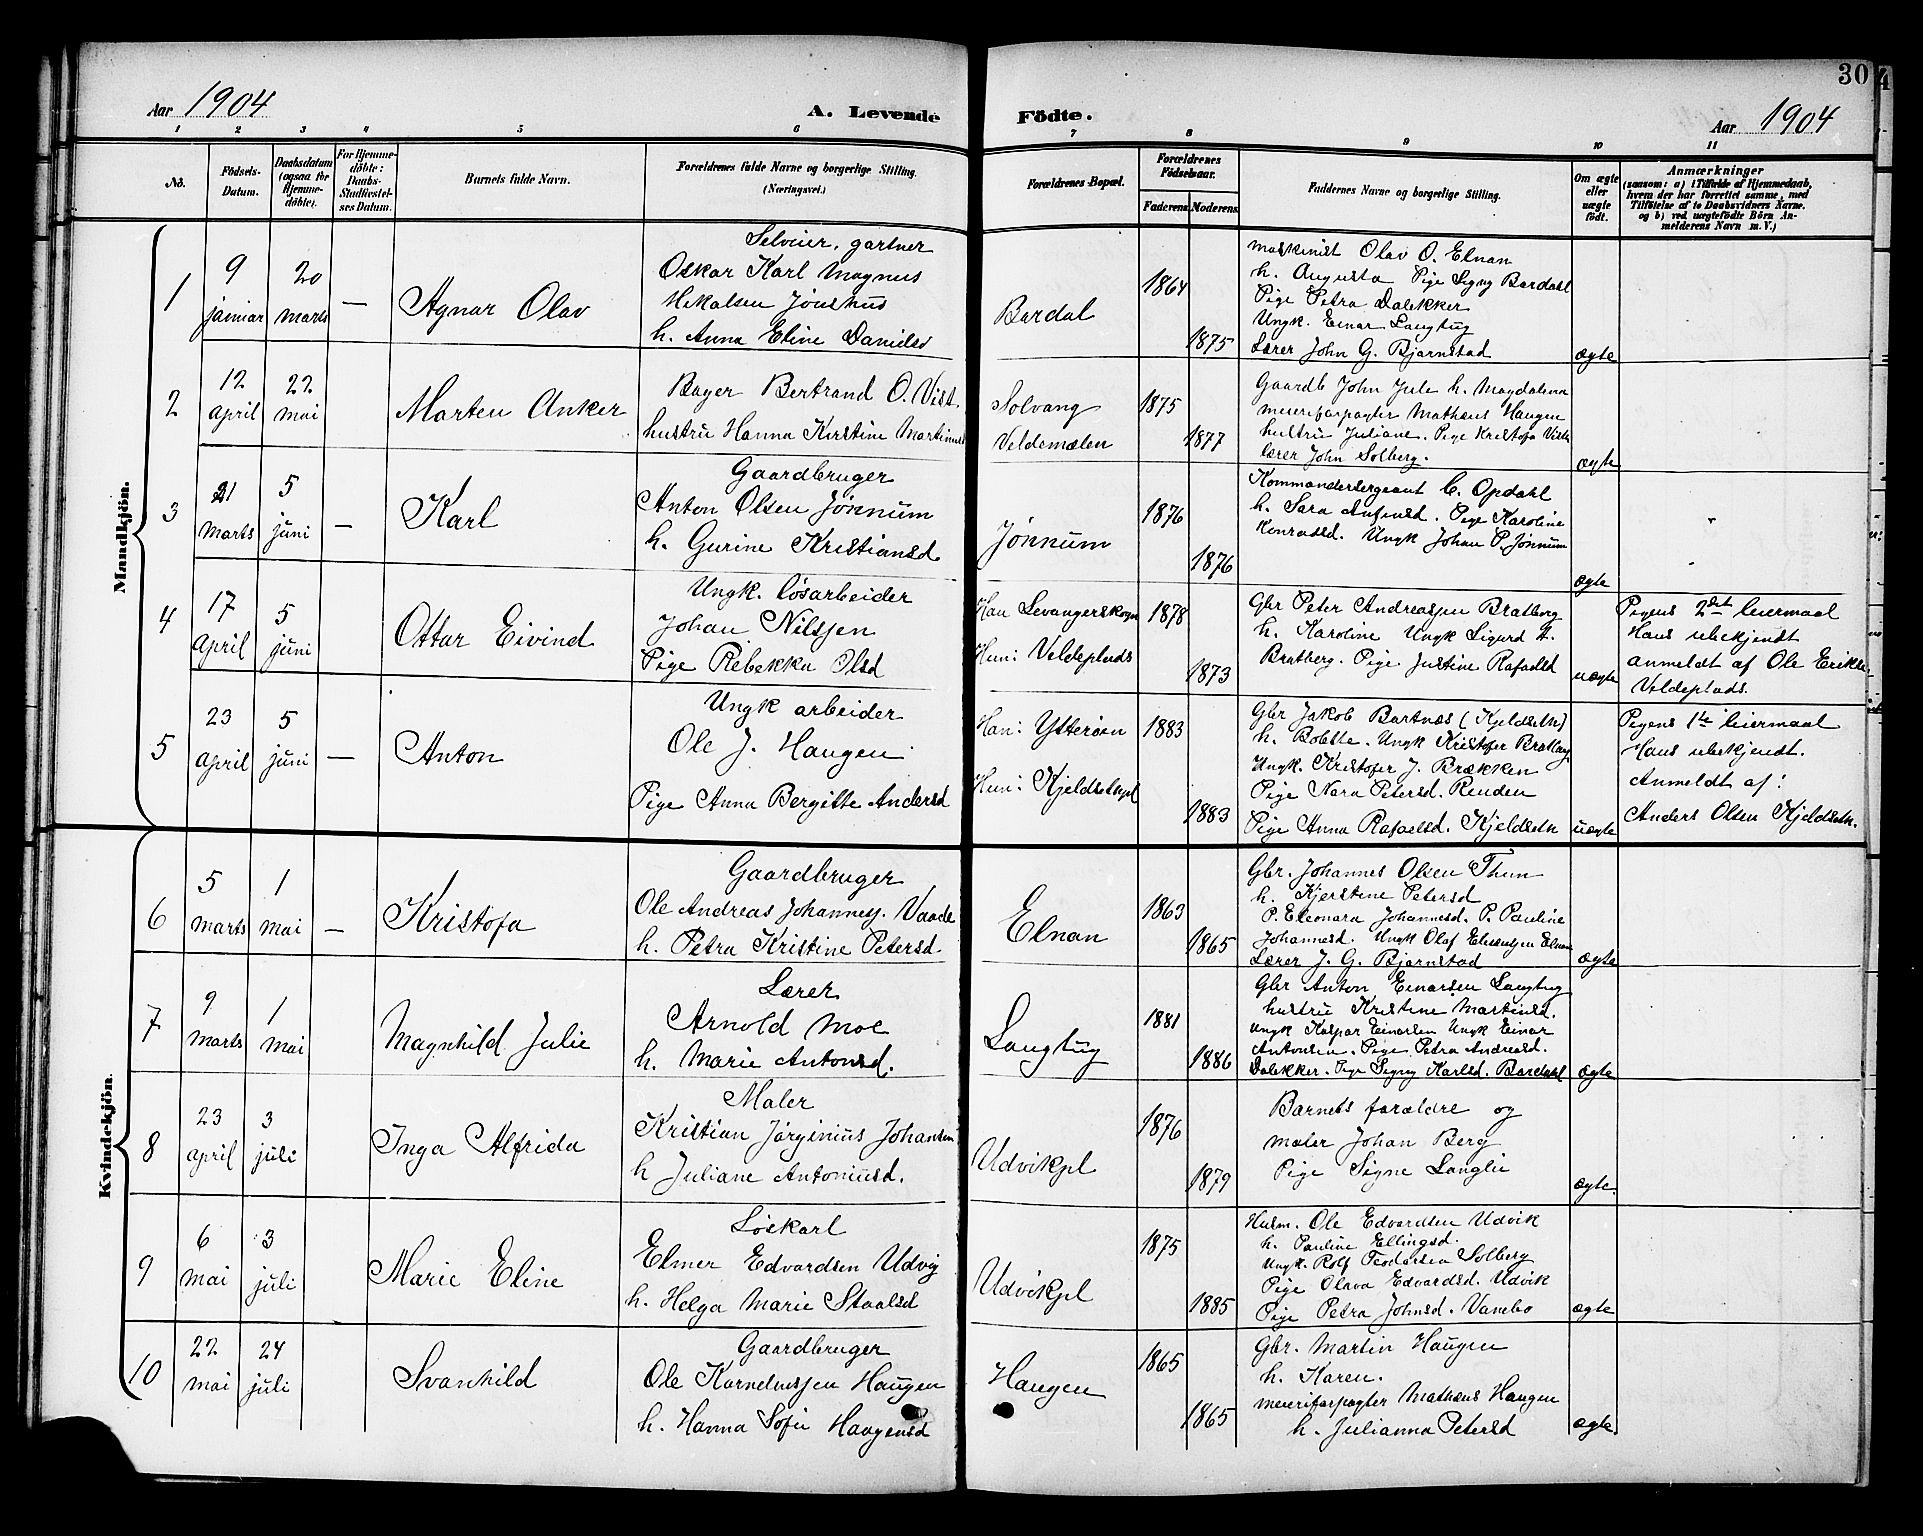 Aar 1904
A. Levende
Födte.
Aar 1904
30
1 2 3 4 5 6 7 8 9 10 11
No.
Födsels-Datum.
Daabsdatum (ogsaa for Hjemme-döbte).
For Hjemme-döbte: Daabs-Stadfæstel-ses Datum.
Barnets fulde Navn.
Forældrenes fulde Navne og borgerlige Stilling.
(Næringsvei.)
Forældrenes Bopæl.
Forældrenes Födselsaar.
Faderens
Moderens
Faddernes Navne og borgerlige Stilling.
Om ægte eller uægte födt.
Anmærkninger
(saasom: a) i Tilfælde af Hjemmedaab,
hvem der har forrettet samme, med
Tilföielse af to Daabsvidners Navne.
og b) ved uægtefödte Börn An-
melderens Navn m. V.)
Mandkjön.
1
9 januar
20 marts
—
Agnar Olav
Selveier, gartner
Oskar Karl Magnus
h. Anna Eline Danielsd
Bardal
1864
1875
maskinist Olav O. Elnan
h. Augusta Pige Signy Bardahl
Pige Petra Dalekker
Ungk. Einar Langtug
Lærer John G. Bjarnstad
ægte
2
12 april
22 mai
Marten Anker
Bager Bertrand O. Vist
hustru Hanna Kirstine Martinusd
Solvang
Veldemælen
1875
1877
Gaardb John Jule h. Magdalena
meieriforpagter Mathæus Haugen
hustru Juliane. Pige Kristofa
Lærer John Solberg.
ægte
3
21 Marts
5 juni
—
Karl
Gaardbruger
Anton Olsen Jønnum
h. Gurine Kristiansd.
Jønnum
1876
1876
Kommandersergeant C. Opdahl
h. Sara Pige Karoline
Konradsd. Ungk Johan P. Jønnum
ægte
4
17 april
5 juni
Ottar Eivind
Ungk. løsarbeider
Johan Nilsen
Pige Rebekka Olsd
Han Levangerskogn
Hun: Veldeplads
1878
1873
Gbr Peter Andreassen Bratberg
h. Karoline Ungk Sigurd
Bratberg. Pige Justine Rafaelsd
uægte
Pigens 2det leiermaal
Hans ubekjendt
anmeldt af Ole Eriks.
Veldeplads.
5
23 april
5 juni
—
Anton
Ungk arbeider
Ole J. Haugen.
Pige Anna Bergitte Andersd
Han: Ytterøen
Hun: Kjeldsetpl
1883
1883
Gbr Jakob Bartnæs (Kjeldseth)
h. Bolette. Ungk Kristofer
Ungk. Kristofer J. Brækken
Pige Nora Petersd. Renden
Pige Anna Rafaelsd. Kjeldseth
uægte
Pigens 1te leiermaal
Hans ubekjendt.
Anmeldt af:
Anders Olsen Kjeldseth.
Kvindekjön.
6
5 marts
1 mai
—
Kristofa
Gaardbruger
Ole Andreas Johannesj. Vaade
h. Petra Kristine Petersd.
Elnan
1863
1865
Gbr. Johannes Olsen Thun
h. Kjerstine Petersd
P. Eleonara Johannesd. P. Pauline
Johannesd. Ungk Olaf Elnan
Lærer J. G. Bjarnstad
ægte
7
9 marts
1 mai
Magnhild Julie
Lærer
Arnold Moe
h. Marie Antonsd.
Langtug
1881
1886
Gbr Anton Einarsen Langtug
hustru Kristine Martinsd.
ungk Kaspar Einarsen Ungk Einar
Antonsen. Pige Petra Andreasd.
Dalekker. Pige Signy Karlsd. Bardahl
ægte
8
23 april
3 juli
Inga Alfrida
Maler
Kristian Jørginius Johansen
h Juliane Antoniusd.
Udvikpl
1876
1879
Barnets forældre og
maler Johan Berg
Pige Signe Langlie
ægte.
9
6 mai
3 juli
Marie Eline
Løskarl
Elmer Edvardsen Udvig
h. Helga Marie Staalsd
Udvikpl
1875
1885
Husm. Ole Edvardsen Udvik
h. Pauline Ellingsd.
Ungk. Rolf Teodorsen Solberg
Pige Olava Edvardsd. Udvik
Pige Petra Johnsd. Vanebo
ægte
10
22 mai
24 juli
Svanhild
Gaardbruger
Ole Kornelussen Haugen
h. Hanna Sofie Haagensd
Haugen
1865
1865
Gbr. Martin Haugen
h. Karen.
meieriforpagter Mathæus Haugen
h. Julianna Petersd
ægte.